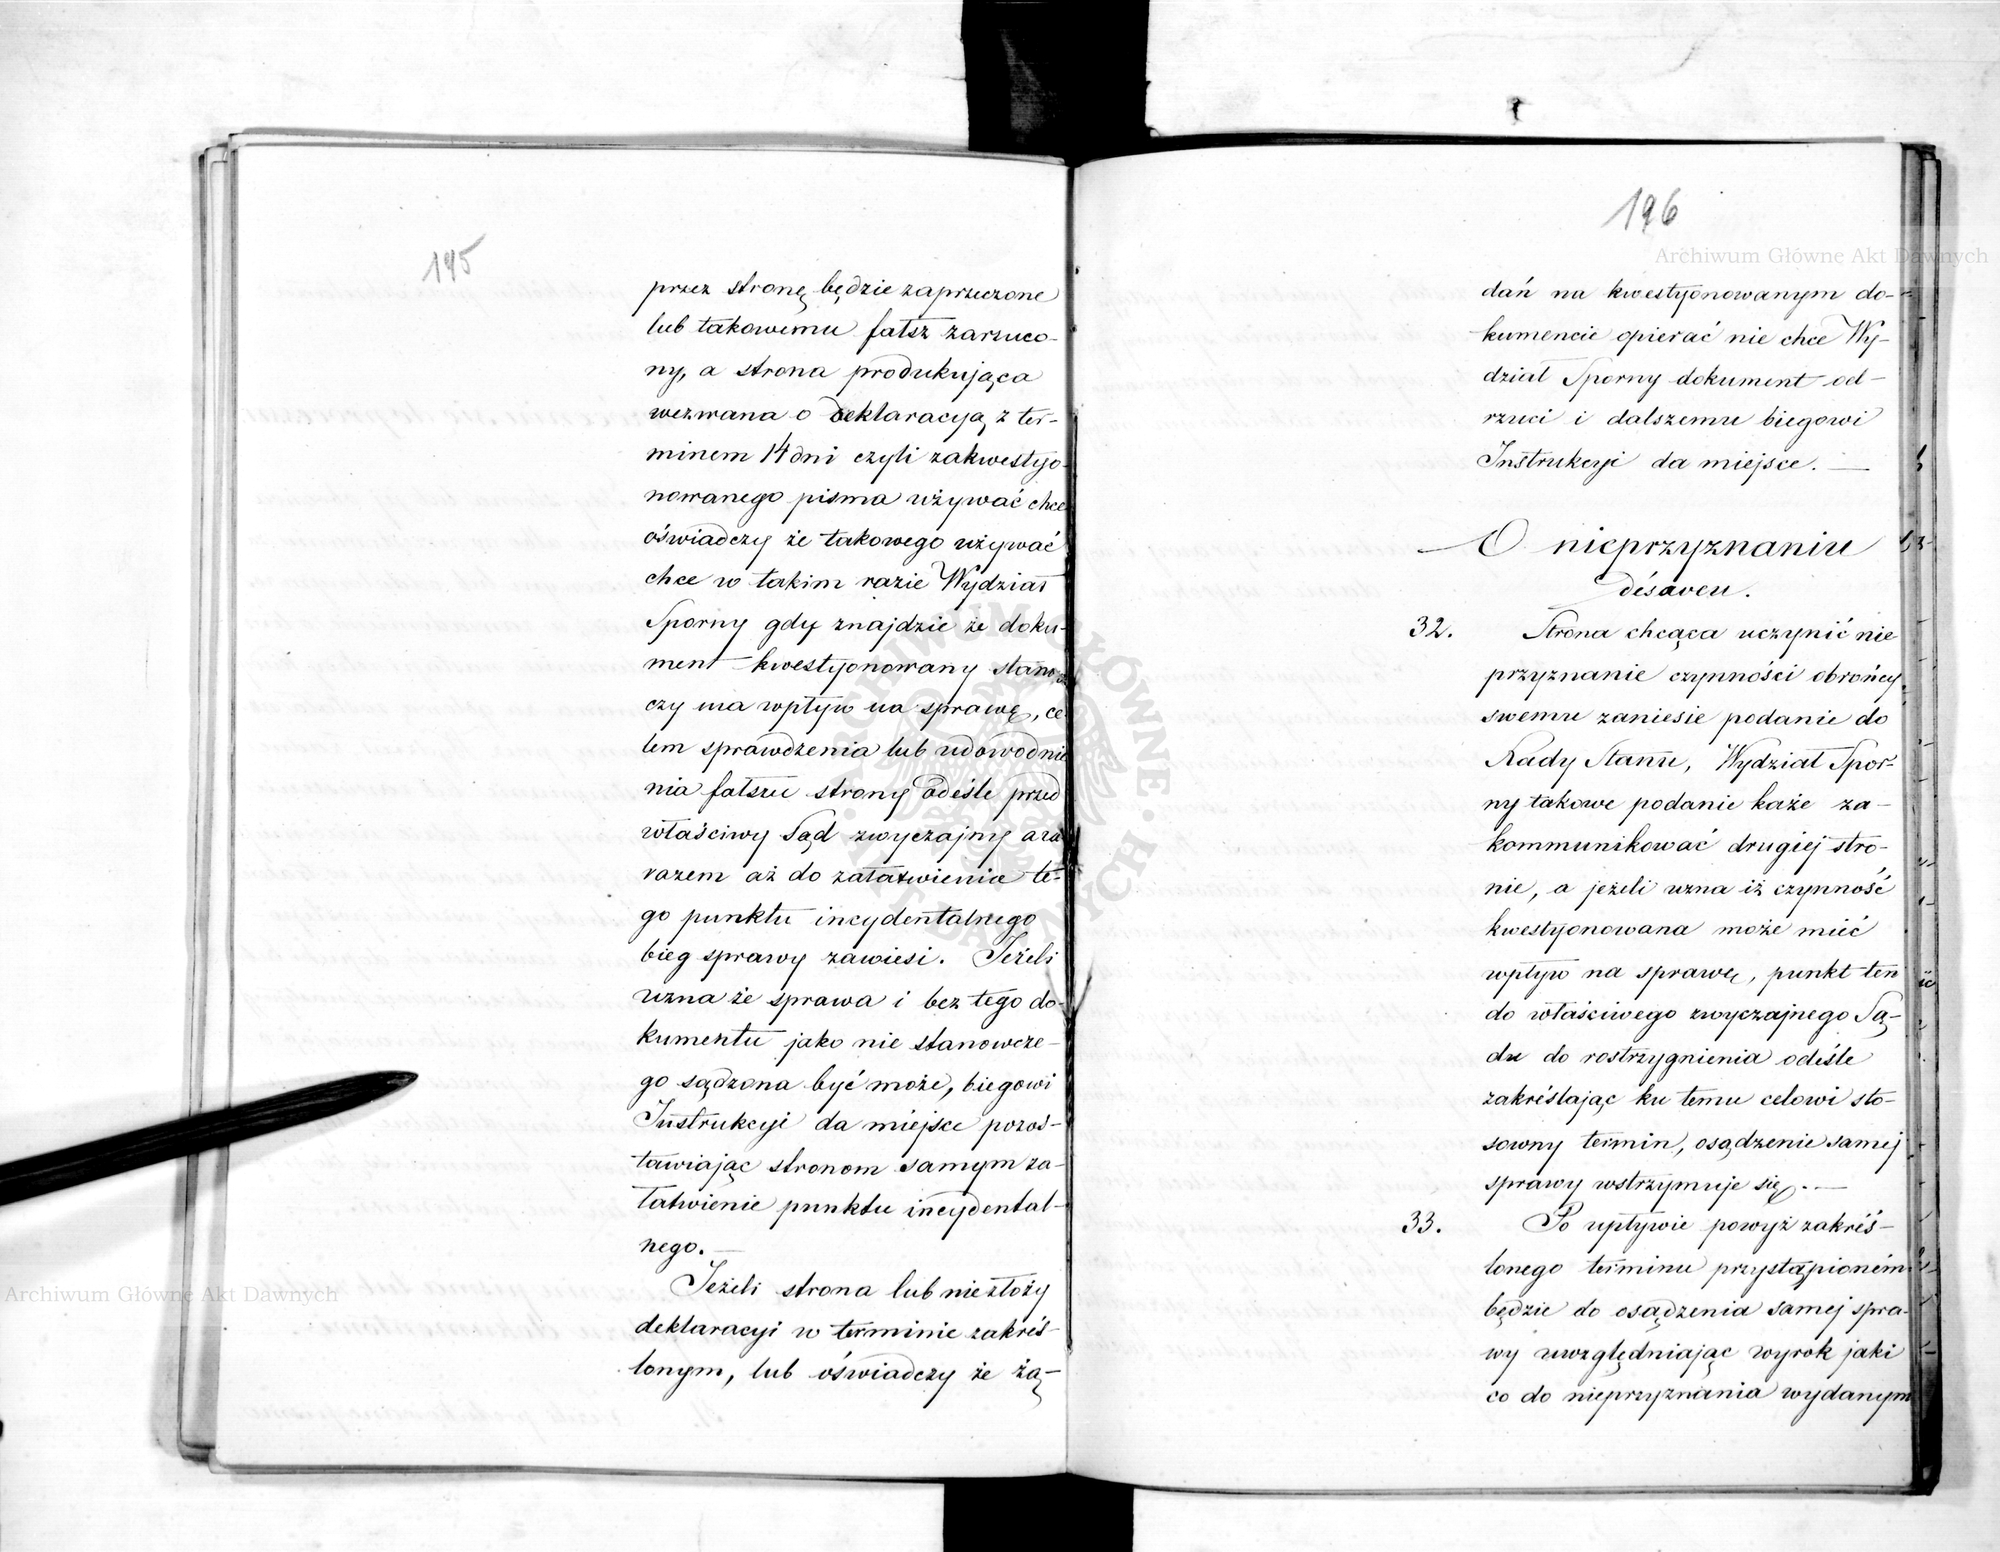 195
przez stronę będzie zaprzeczone
lub takowemu fałsz zarzuco-
ny, a strona produkująca
wezwana o deklaracyą z ter-
minem 14 dni czyli zakwestyo-
nowanego pisma używać chce
oświadczy że takowego używać
chce w takim razie Wydział
Sporny gdy znajdzie że doku-
ment kwestyonowany stanow
czy ma wpływ na sprawę, ce-
lem sprawdzenia lub udowodnie
nia fałszu strony odeśle przed
właściwy Sąd zwyczajny a za
razem aż do załatwienia te-
go punktu incydentalnego
bieg sprawy zawiesi. Jeżeli
uzna że sprawa i bez tego do-
kumentu jako nie stanowcze-
go sądzona być może, biegowi
Instrukcyi da miejsce pozos-
tawiając stronom samym za-
łatwienie punktu incydental-
nego. —
Jeżeli strona lub nie złoży
deklaracyi w terminie zakreś-
lonym, lub oświadczy że żą-
196
dań na kwestyonowanym do-
kumencie opierać nie chce Wy-
dział Sporny dokument od-
rzuci i dalszemu biegowi
Instrukcyi da miejsce. —
O nieprzyznaniu
désaveu.
32. Strona chcąca uczynić nie
przyznanie czynności obrońcy
swemu zaniesie podanie do
Rady Stanu, Wydział Spor-
ny takowe podanie każe za-
kommunikować drugiej stro-
nie, a jeżeli uzna iż czynność
kwestyonowana może mieć
wpływ na sprawę, punkt ten
do właściwego zwyczajnego Są-
du do rostrzygnienia odeśle
zakréślając ku temu celowi sto-
sowny termin, osądzenie samej
sprawy wstrzymuje się. —
33. Po upływie powyż zakréś-
lonego terminu przystąpioném
będzie do osądzenia samej spra-
wy uwzględniając wyrok jaki
co do nieprzyznania wydanym
Archiwum Główne Akt Dawnych
Archiwum Główne Akt Dawnych
ARCHIWUM GŁÓWNE AKT DAWNYCH